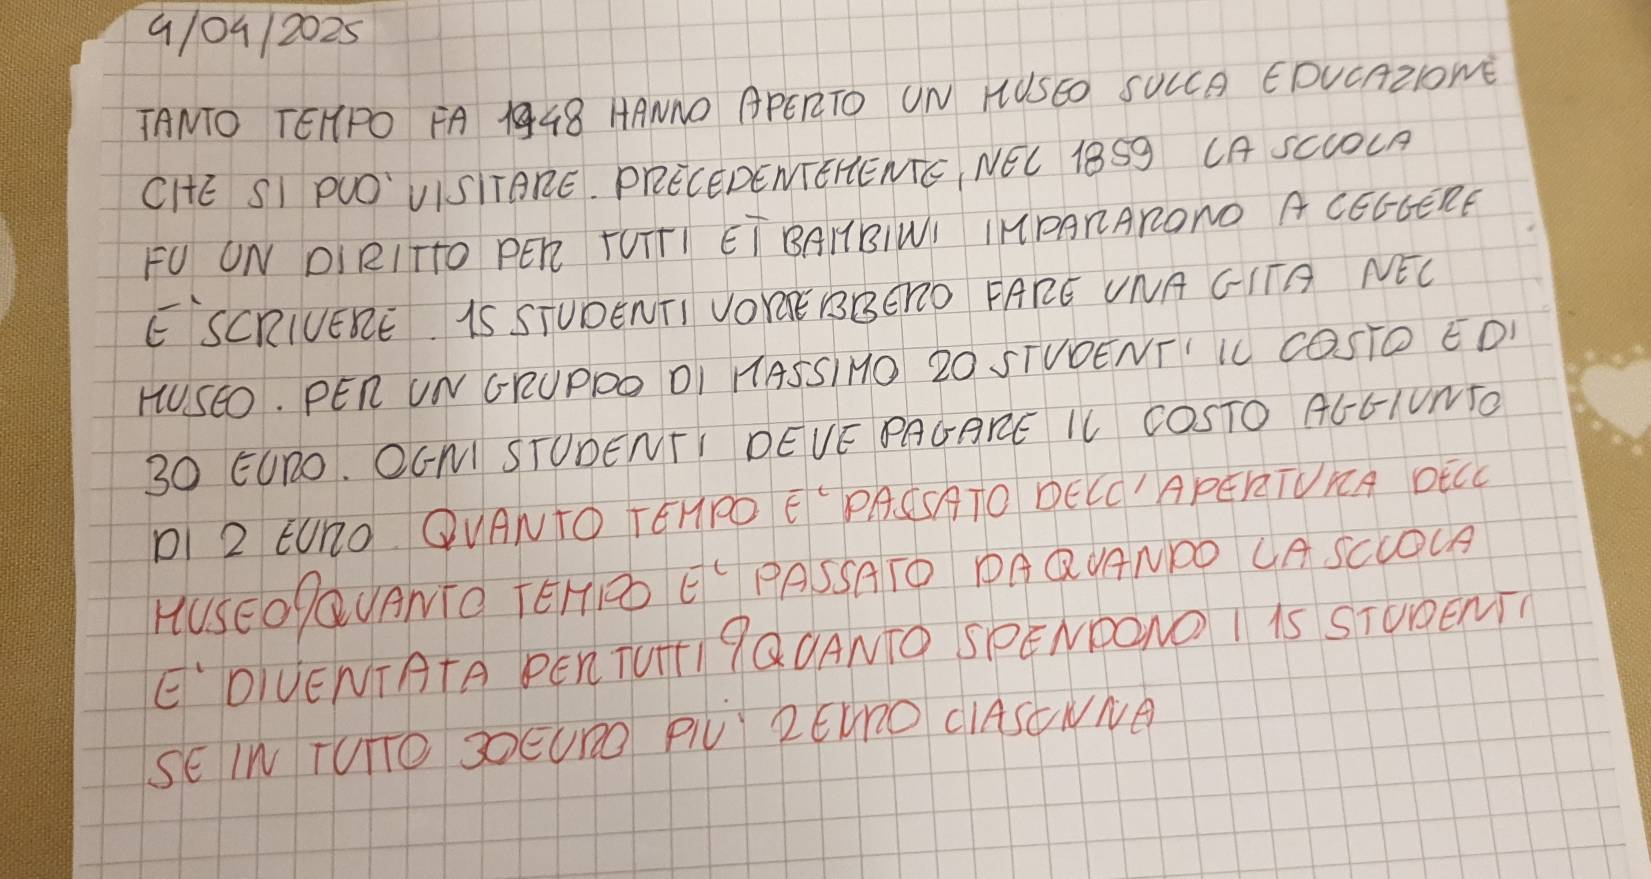 4/04/2025
TANTO TEMPO FA 1948 HANNO APERTO UN MUSEO SULLA EDUCAZIONE
CHE SI PUO' VISITARE. PRECEDENTEMENTE, NEL 1859 LA SCUOLA
FU UN DIRITTO PER TUTTI E I BAMBINI IMPARARONO A LEGGERE
E SCRIVERE. 15 STUDENTI VORREBBERO FARE UNA GITA NEL
MUSEO. PER UN GRUPPO DI MASSIMO 20 STUDENTI IL COSTO E DI
30 EURO. OGNI STUDENTI DEVE PAGARE IL COSTO AGGIUNTO
DI 2 EURO. QUANTO TEMPO E' PASSATO DELL'APERTURA DELL
MUSEO? QUANTO TEMPO E' PASSATO DA QUANDO LA SCUOLA
E' DIVENTATA PER TUTTI? QUANTO SPENDONO I 15 STUDENTI
SE IN TUTTO 30 EURO PIU' 2 EURO CIASCUNNA